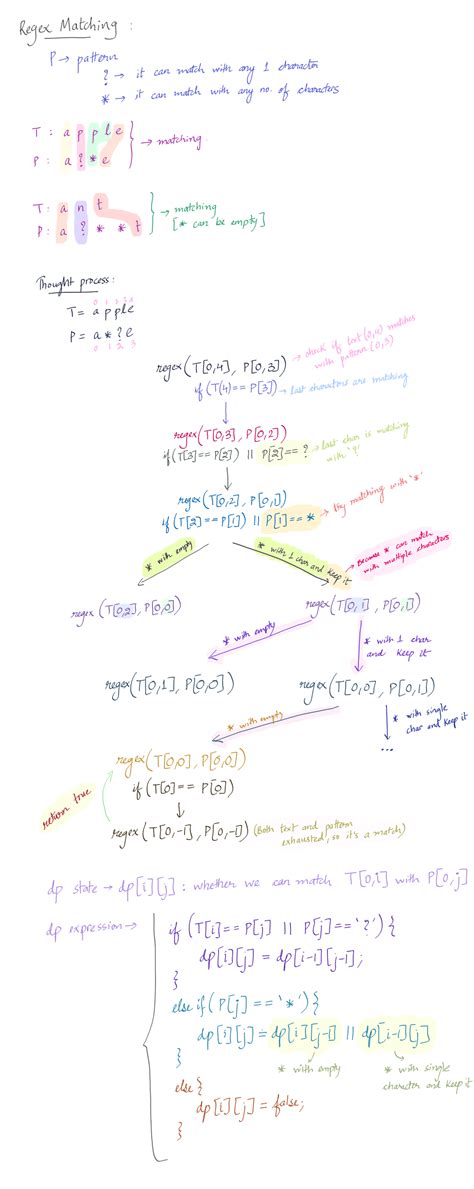 Regex Matching :
P → pattern
? → it can match with any 1 character
* → it can match with any no. of characters
T : a p p l e
P : a ? * e
→ matching
T : a n t
P : a ? * * t
→ matching
[* can be empty]
Thought process :
0 1 2 3 4
T = a p p l e
P = a * ? e
0 1 2 3
regex (T[0,4], P[0,3]) → check if text (0,4) matches with pattern (0,3)
if (T(4) == P[3]) → last characters are matching
regex (T[0,3], P[0,2])
if (T[3] == P[2] || P[2] == ? → last char is matching with '?'
regex (T[0,2], P[0,1])
if (T[2] == P[1]) || P[1] == * → try matching with '*'
* with empty
* with 1 char and keep it
→ Because * can match with multiple characters
regex (T[0,2], P[0,0])
regex (T[0,1], P[0,1])
* with empty
* with 1 char and keep it
regex (T[0,1], P[0,0])
regex (T[0,0], P[0,1])
* with empty
* with single char and keep it
...
regex (T[0,0], P[0,0])
if (T[0] == P[0])
return true
regex (T[0,-1], P[0,-1]) (Both text and pattern exhausted, so it's a match)
dp state → dp[i][j] : whether we can match T[0,i] with P[0,j]
dp expression →
if (T[i] == P[j] || P[j] == '?') {
dp[i][j] = dp[i-1][j-1];
}
else if (P[j] == '*') {
dp[i][j] = dp[i][j-1] || dp[i-1][j]
}
* with empty
* with single character and keep it
else {
dp[i][j] = false;
}